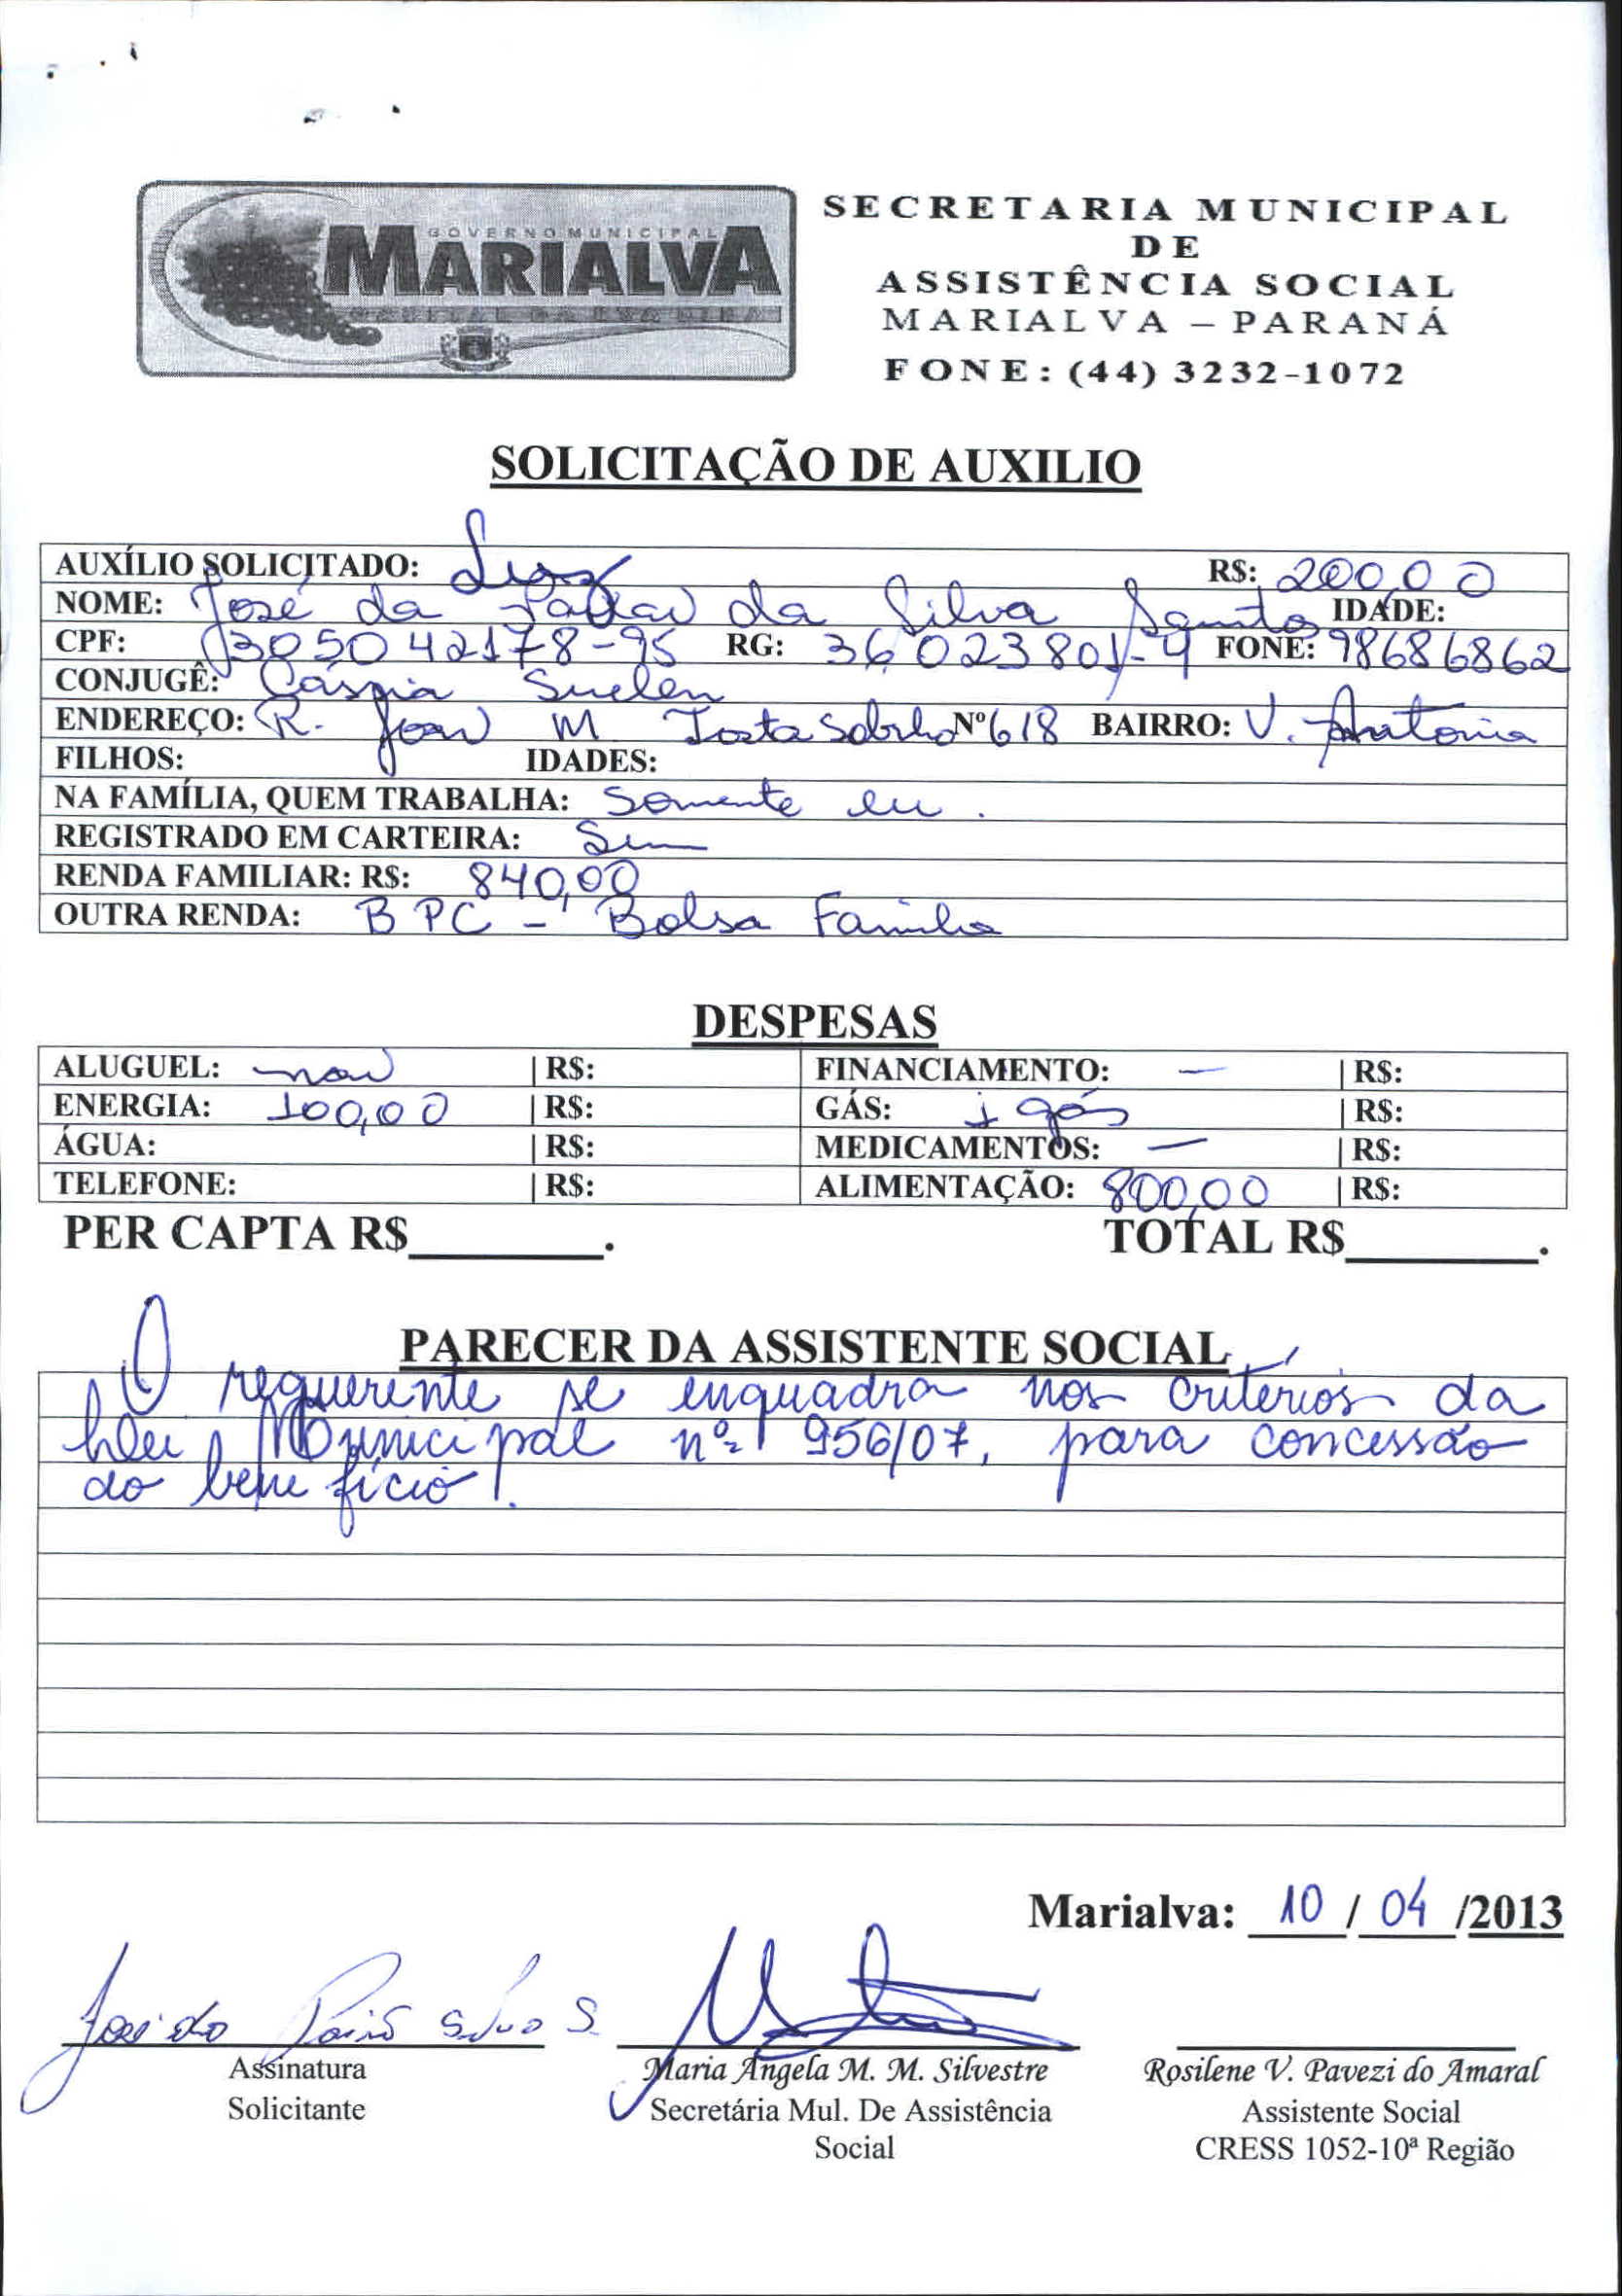 GOVERNO MUNICIPAL
MARIALVA
SECRETARIA MUNICIPAL
DE
ASSISTÊNCIA SOCIAL
MARIALVA – PARANÁ
FONE: (44) 3232-1072
SOLICITAÇÃO DE AUXILIO
AUXÍLIO SOLICITADO: Luz R$: 200,00
NOME: José da da Silva Santos IDADE:
CPF: RG: 36023801-4 FONE: 98686862
CONJUGÊ: Suelen
ENDEREÇO: R. Joao M Sobrinho Nº 618 BAIRRO: V. Antonia
FILHOS: IDADES:
NA FAMÍLIA, QUEM TRABALHA: Somente eu.
REGISTRADO EM CARTEIRA: Sim
RENDA FAMILIAR: R$: 840,00
OUTRA RENDA: BPC - Bolsa Familia
DESPESAS
ALUGUEL: nao | R$: FINANCIAMENTO: — | R$:
ENERGIA: 100,00 | R$: GÁS: 1 gás | R$:
ÁGUA: | R$: MEDICAMENTOS: — | R$:
TELEFONE: | R$: ALIMENTAÇÃO: 800,00 | R$:
PER CAPTA R$________. TOTAL R$________.
PARECER DA ASSISTENTE SOCIAL
O requerente se enquadra nos critérios da
Lei Municipal nº 956/07, para concessão
do benefício.
Marialva: 10 / 04 /2013
Assinatura
Solicitante
Maria Ângela M. M. Silvestre
Secretária Mul. De Assistência
Social
Rosilene V. Pavezi do Amaral
Assistente Social
CRESS 1052-10ª Região